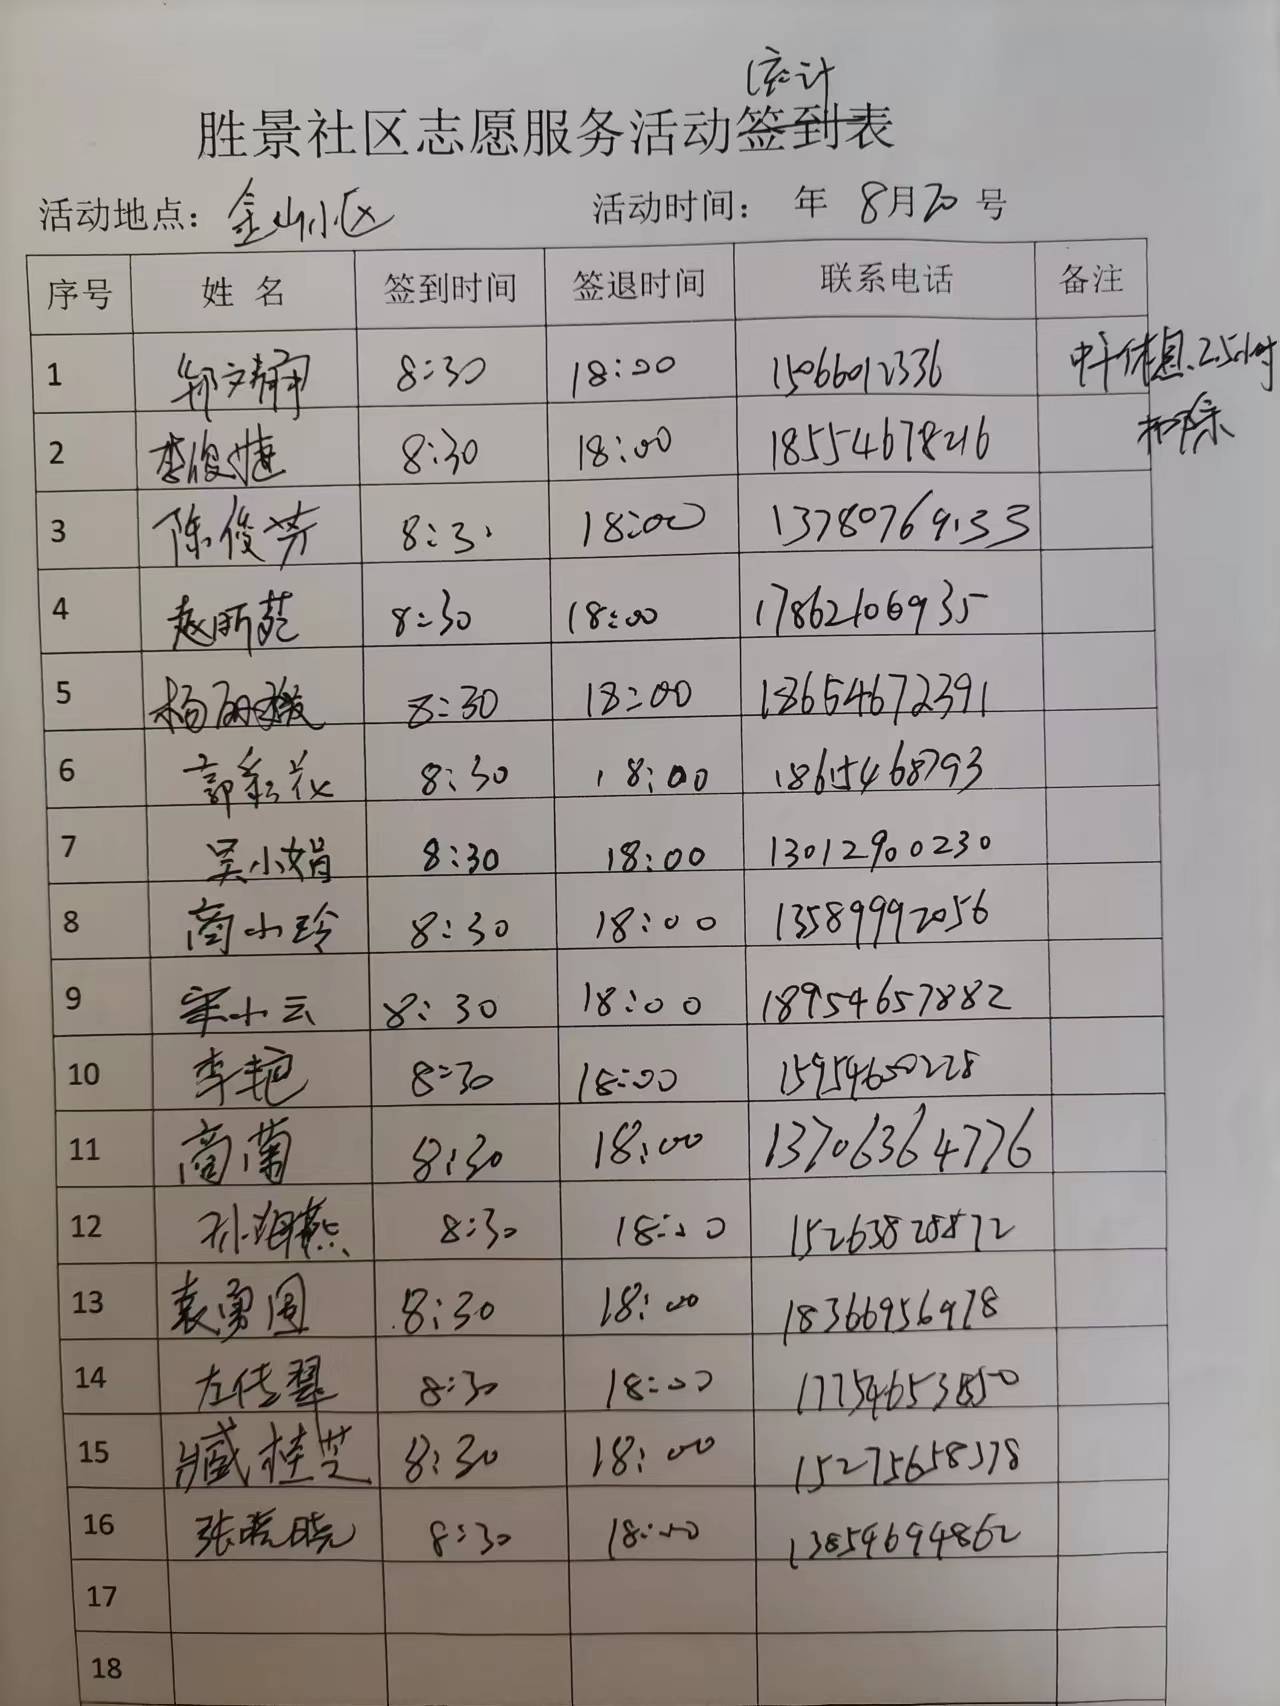 统计
胜景社区志愿服务活动签到表
活动地点：金山小区 活动时间： 年 8月20号
序号 姓名 签到时间 签退时间 联系电话 备注
1 郭文静 8:30 18:00 15066012336 中午休息2.5小时
扣除
2 李俊婕 8:30 18:00 18554678216
3 陈俊芳 8:30 18:00 13780769133
4 赵昕苑 8:30 18:00 17862106935
5 杨丽媛 8:30 18:00 18654672391
6 郭彩花 8:30 18:00 18615468793
7 吴小娟 8:30 18:00 13012900230
8 商小玲 8:30 18:00 13589992056
9 宋小云 8:30 18:00 18954657882
10 李艳 8:30 18:00 15954650228
11 商菊 8:30 18:00 13706364776
12 孙海燕 8:30 18:00 15263828872
13 袁勇国 8:30 18:00 18366956978
14 左传翠 8:30 18:00 17754653850
15 臧桂芝 8:30 18:00 15275658378
16 张晓晓 8:30 18:00 13854694862
17
18